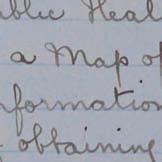 ublic Heal
a Map of
formation
obtaining